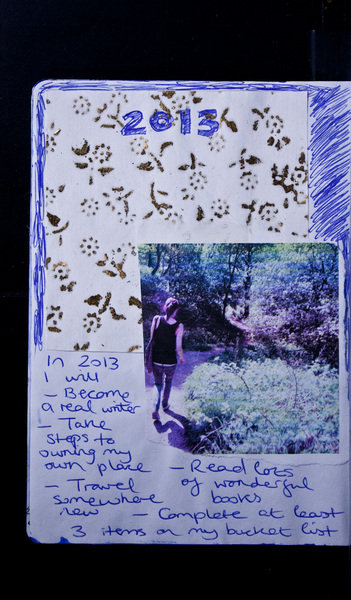 2013
In 2013
I will
- Become
a real writer
- Take
steps to
owning my
own place
- Travel
somewhere
new
- Read lots
of wonderful
books
- Complete at least
3 items on my bucket list